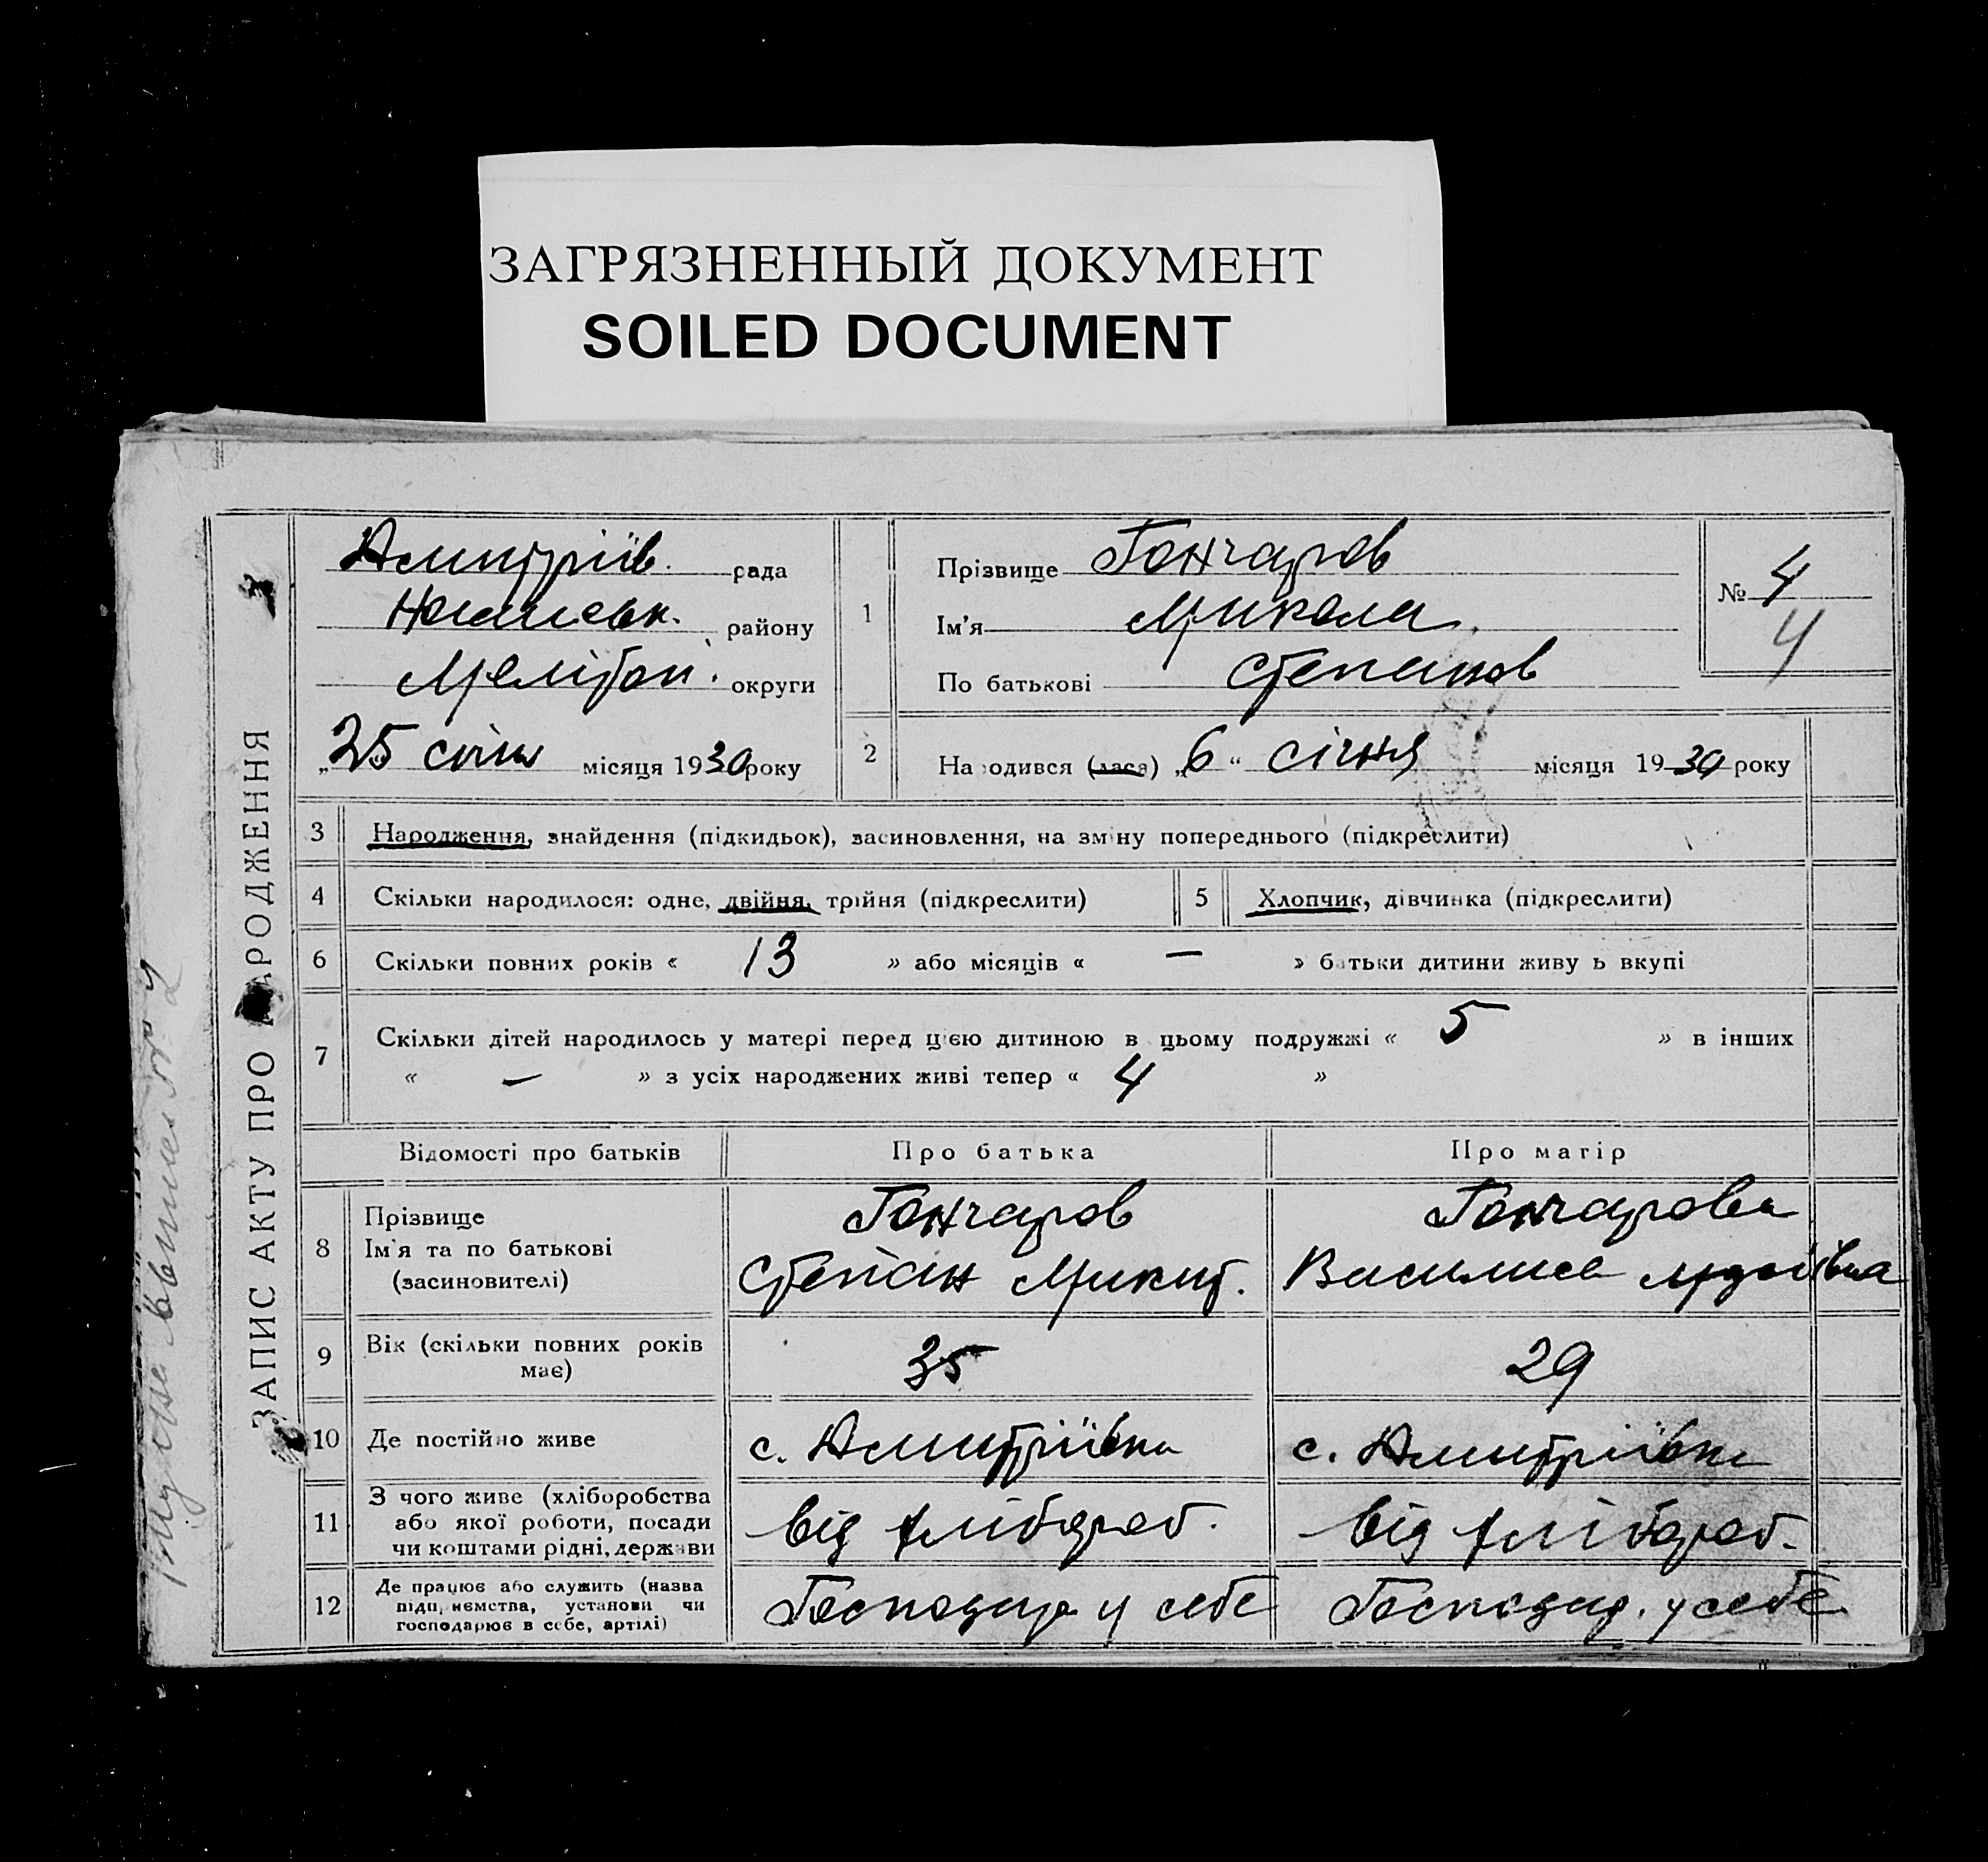 ЗАГРЯЗНЕННЫЙ ДОКУМЕНТ
SOILED DOCUMENT
ЗАПИС АКТУ ПРО НАРОДЖЕННЯ
Дмитріїв. рада
району
Меліtоп. округи
25 січня місяця 1930 року
1
Прізвище Гончаров
Ім'я Микола
По батькові Степанов
№ 4
4
2 Народився (лася) „6“ січня місяця 1930 року
3 Народження, знайдення (підкидьок), засиновлення, на зміну попереднього (підкреслити)
4 Скільки народилося: одне, двійня, трійня (підкреслити) 5 Хлопчик, дівчинка (підкреслити)
6 Скільки повних років « 13 » або місяців « — » батьки дитини живуть вкупі
7 Скільки дітей народилось у матері перед цією дитиною в цьому подружжі « 5 » в інших
« — » з усіх народжених живі тепер « 4 »
Відомості про батьків Про батька Про матір
8 Прізвище
Ім'я та по батькові
(засиновителі)
Гончаров
Степан Микит.
Гончарова
Василиса
9 Вік (скільки повних років
має)
35 29
10 Де постійно живе с. Дмитріївка с. Дмитріївка
11 З чого живе (хліборобства
або якої роботи, посади
чи коштами рідні, держави
від хлібороб. від хлібороб.
12 Де працює або служить (назва
підприємства, установи чи
господарює в себе, артілі)
Господар у себе Господар. у себе